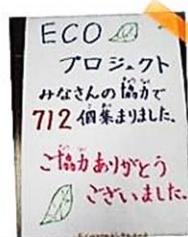 ECO
プロジェクト
みなさんの協力で
712個集まりました。
ご協力ありがとう
ございました。